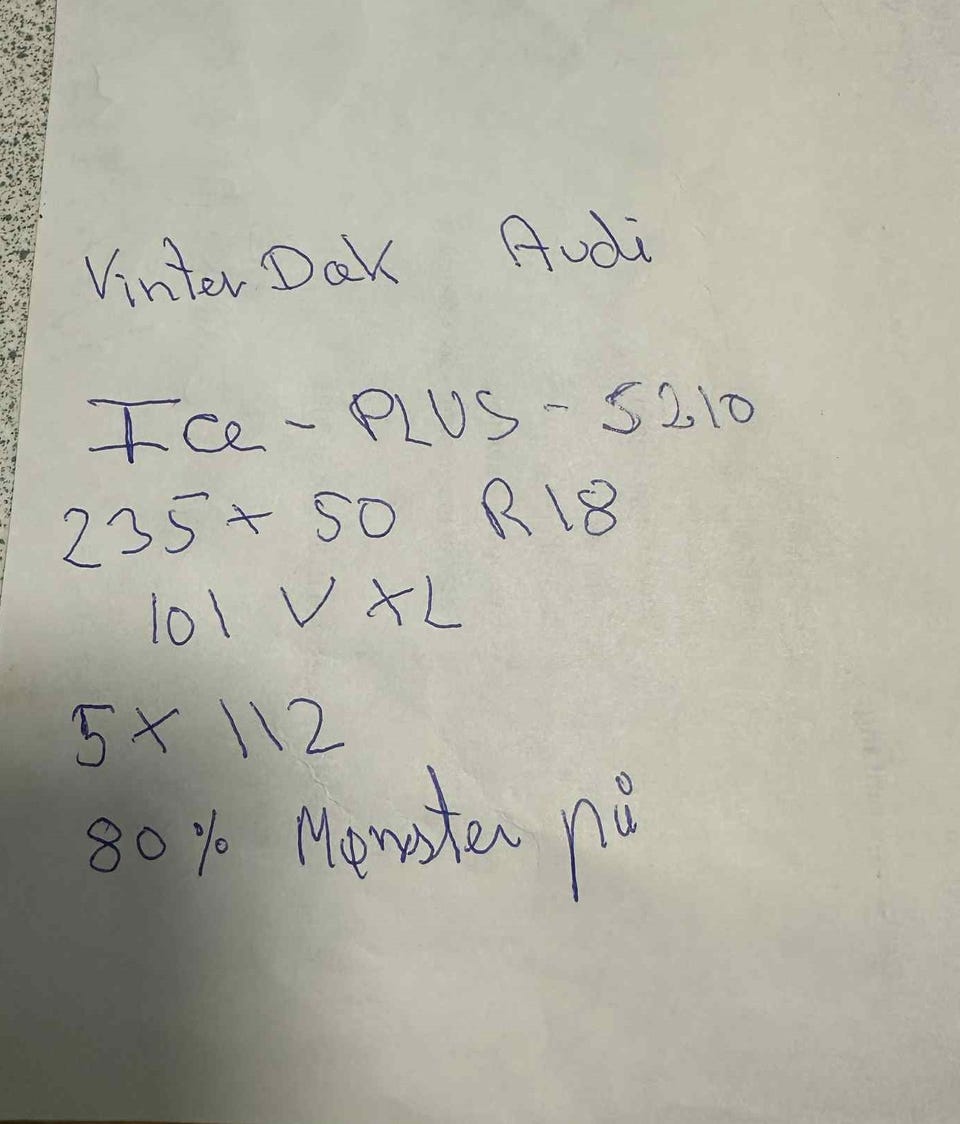 Vinter Dæk Audi
Ice - PLUS - S210
235 x 50 R18
101 V XL
5 x 112
80% Mønster på